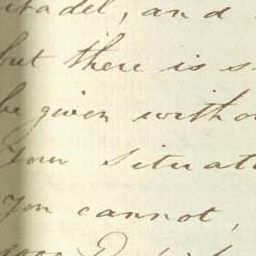 itadel, and
but there is s
be given witho
Your Situat
You cannot,